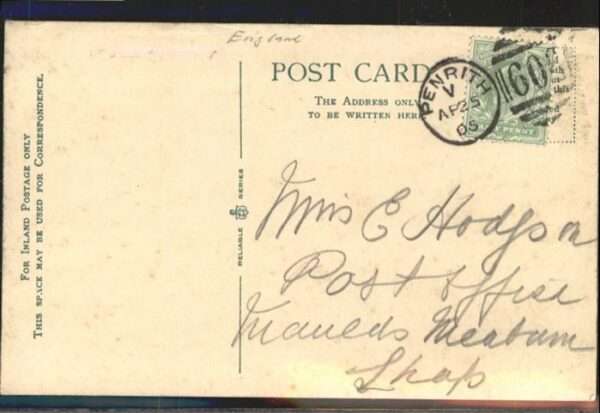 England
POST CARD
THE ADDRESS ONLY
TO BE WRITTEN HERE
PENRITH
V
AP 25
05
60
PENNY
FOR INLAND POSTAGE ONLY
THIS SPACE MAY BE USED FOR CORRESPONDENCE.
RELIABLE SERIES
Miss E Hodgson
Post Office
Maulds Meaburn
Shap